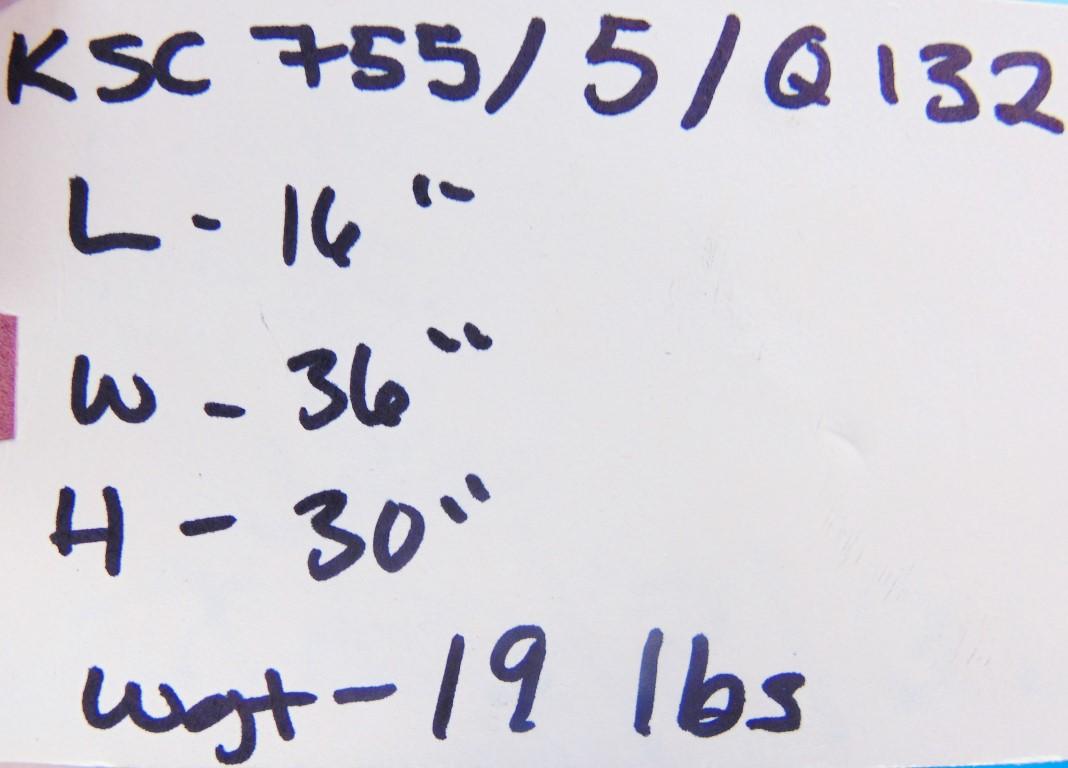 KSC 755/5/Q132
L - 16"
W - 36"
H - 30"
wgt - 19 lbs